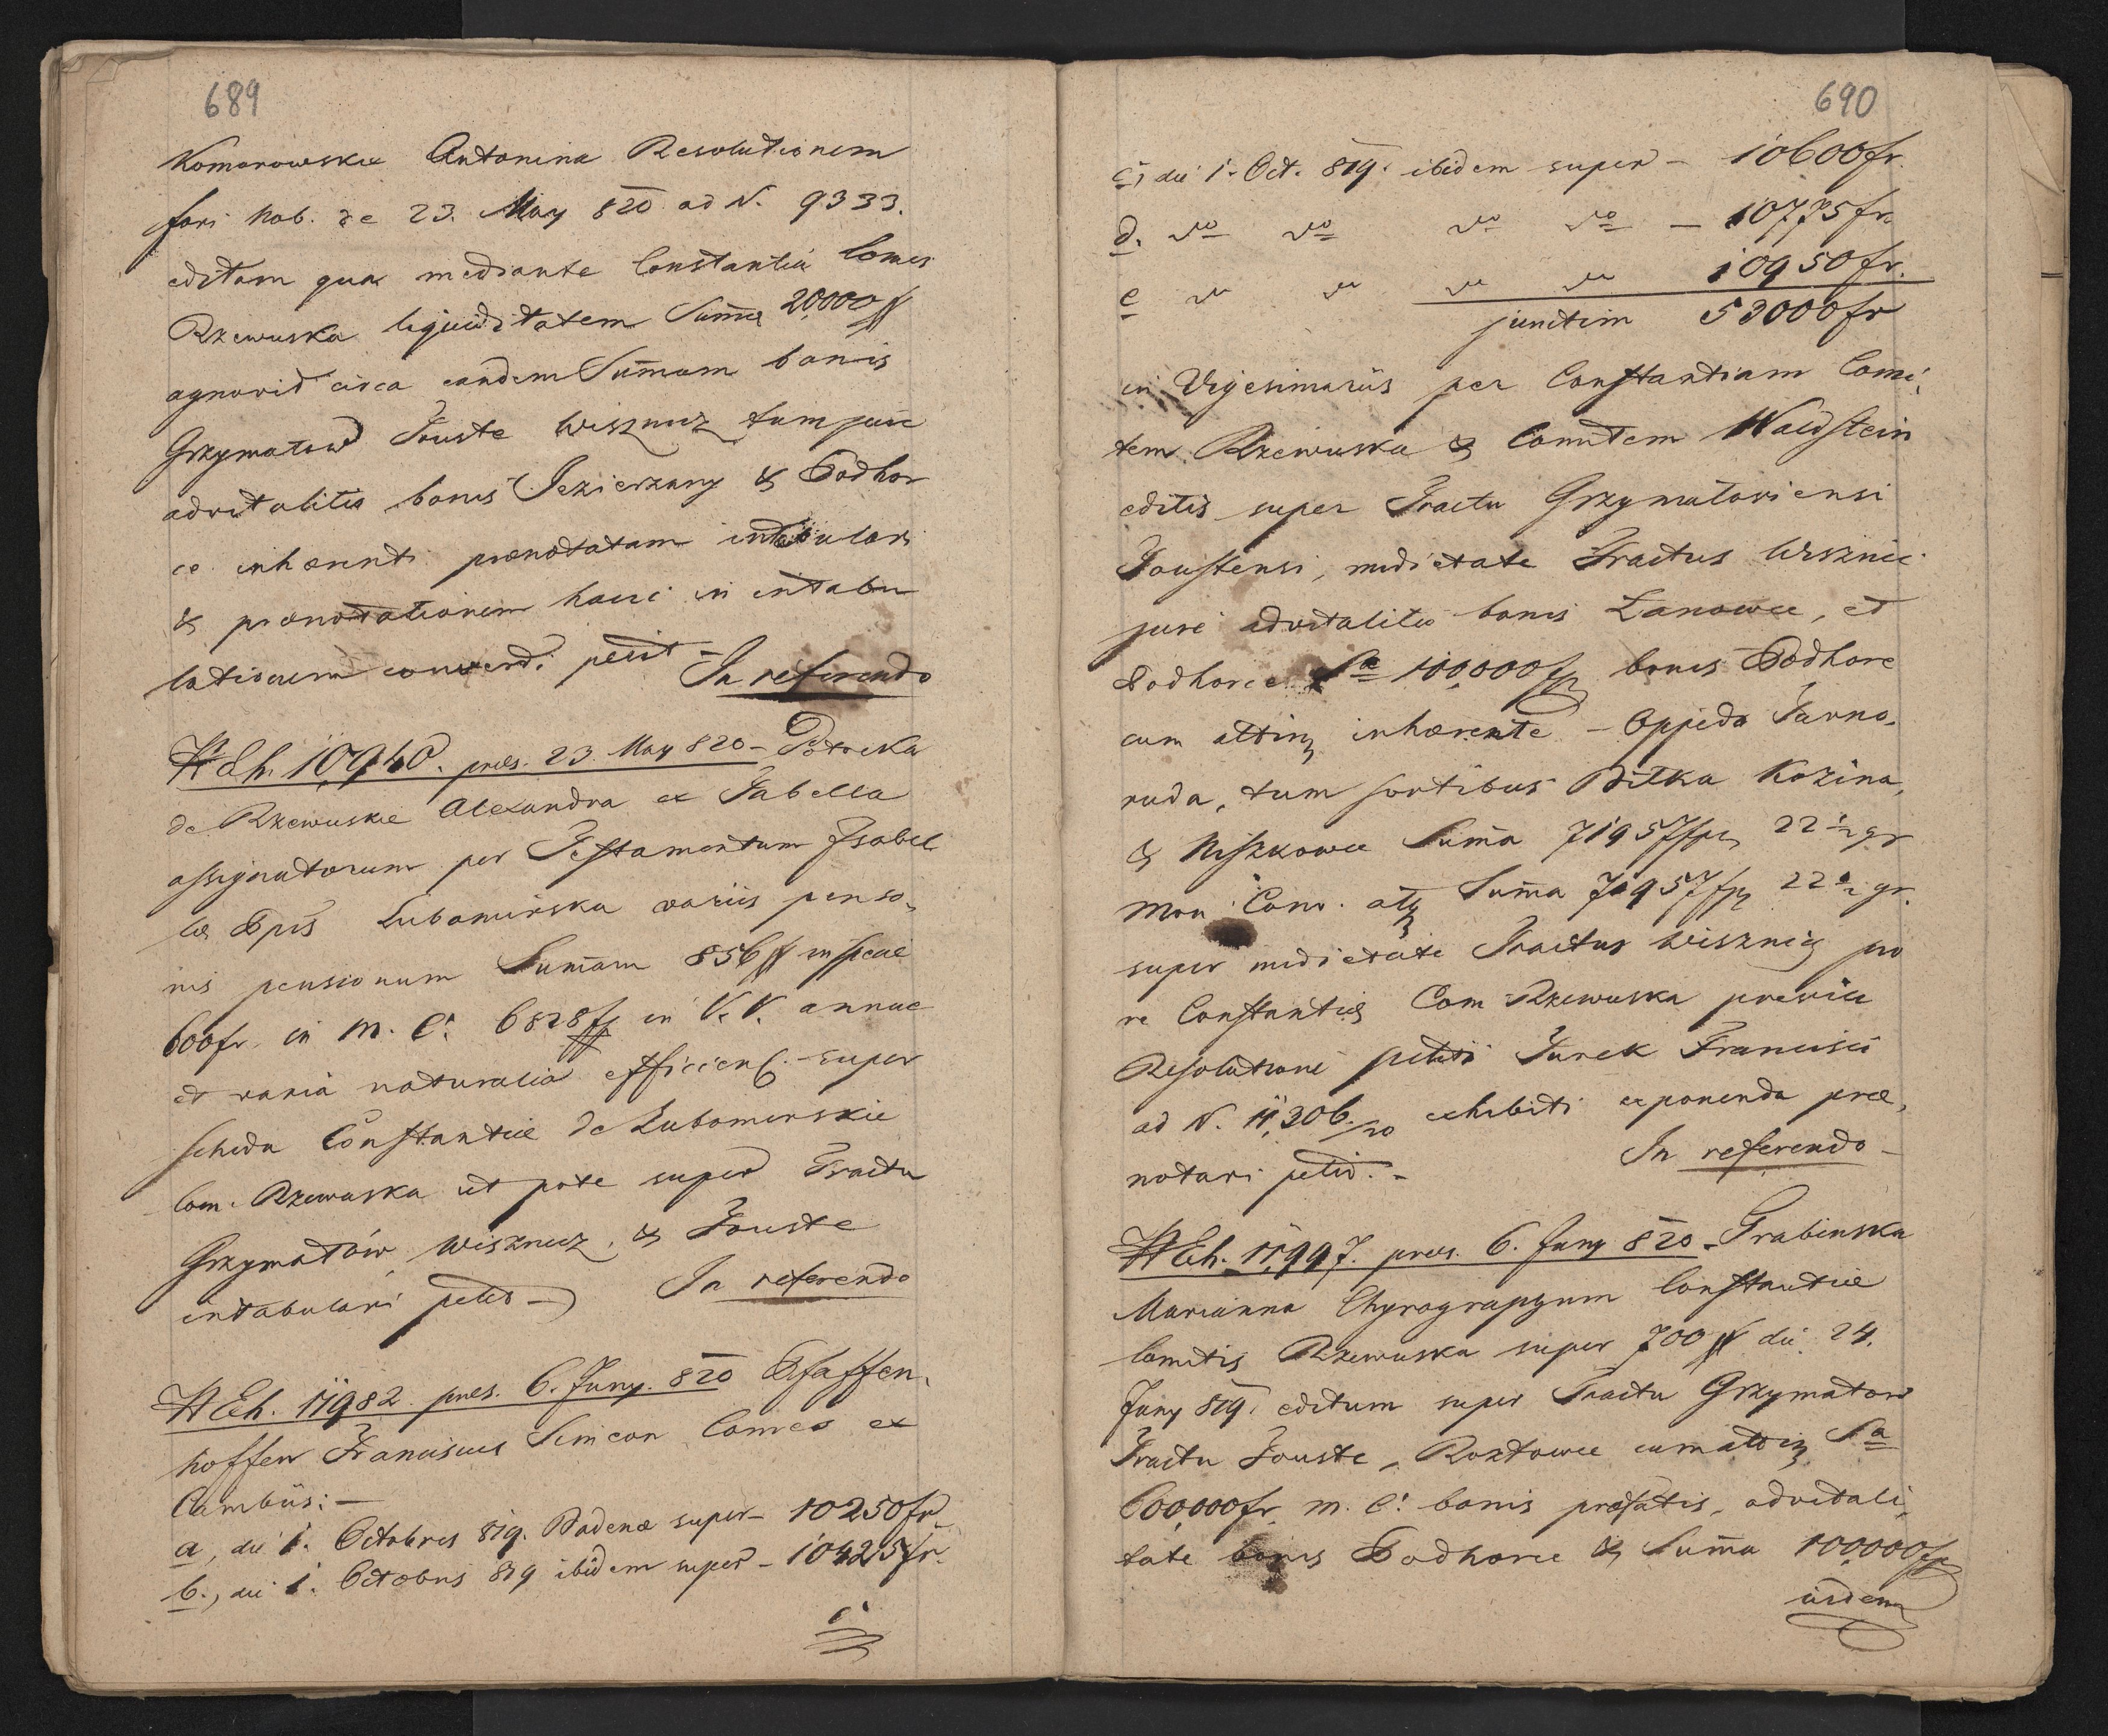 689
Komorowska Antonina Resolutionem
fori Nob. de 23. May 820 ad N. 9333.
editam qua mediante Constantia Comes
Rzewuska liquiditatem Summæ 20,000 #
agnovit circa eandem Summam bonis
Grzymałow Touste Wisznicz tum jure
advitalitio bonis Jezierzany & Podhor
ce inhærenti prænotatam intabulari
& prænotationem hanc in intabu
lationem converti petit –
In referendo
N Exh. 10,940. præs. 23. May 820 – Potocka
de Rzewuskie Alexandra ex Tabella
assignatorum per Testamentum Isabel
læ Pris Lubomirska variis perso,
nis pensionum Summam 856 # in specie
600 fr. in M. C. 6828 fp in V. V. annue
et varia naturalia efficien. super
scheda Constantiæ de Lubomirskie
Com. Rzewuska ut pote super Tractu
Grzymałów, Wisznicz, & Touste
intabulari petit –
In referendo
N Exh. 11982 præs. 6. Juny. 820 Pfaffen,
hoffen Franciscus Simeon Comes ex
Cambiis: –
a, die 1. Octobris 819. Badenæ super – 10250 fr
b., die 1. Octobris 819 ibidem super – 10425 fr.
c
690
c, die 1. Oct. 819. ibidem super – 10600 fr.
d. do do do do – 10775 fr.
e do do do do 10950 fr.
junctim 53000 fr
in Vigesimariis per Constantiam Comi,
tem Rzewuska & Comitem Waldstein
editis super Tractu Grzymałoviensi
Toustensi, medietate Tractus Wisznic
jure advitalitio bonis Łanowce, et
Podhorce Sa 100,000 fp bonis Podhorce
cum attinz inhærente – Oppido Tarno,
ruda, tum sortibus Piłka Kozina,
& Niszkowce Summa 71957 fp 22 ½ gr
Mon Conv. atq Summa 71957 fp 22 ½ gr.
super medietate Tractus Wisznicz pro
re Constantiæ Com Rzewuska previa
Resolutione petiti Turek Francisci
ad N. 11,306/20 exhibiti exponenda præ,
notari petit. –
In referendo –
N Exh. 11,997. præs. 6. Juny 820 – Grabinska
Marianna Chyrograpgum Constantiæ
Comitis Rzewuska super 700 # die 24.
Juny 819. editum super Tractu Grzymałow
Tractu Touste, Roztowce cum attinz Sa
600,000 fr. m. C. bonis præfatis, advitali,
tate bonis Podhorce & Summa 100,000 fp
iisdem